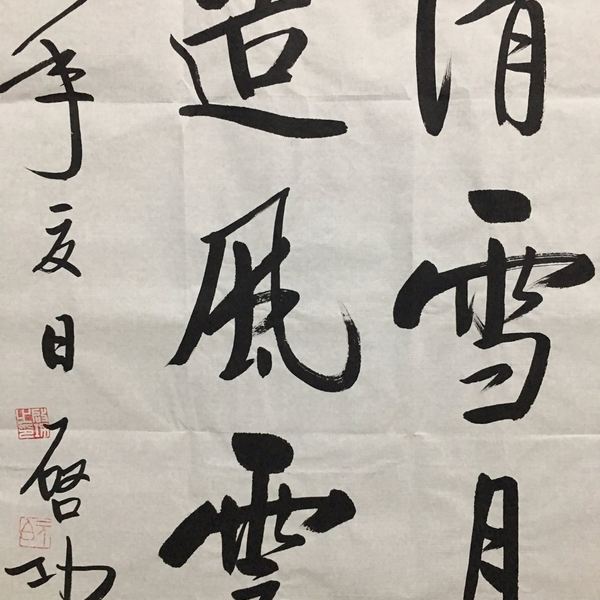 清雪月
造風雲
年夏日啓功